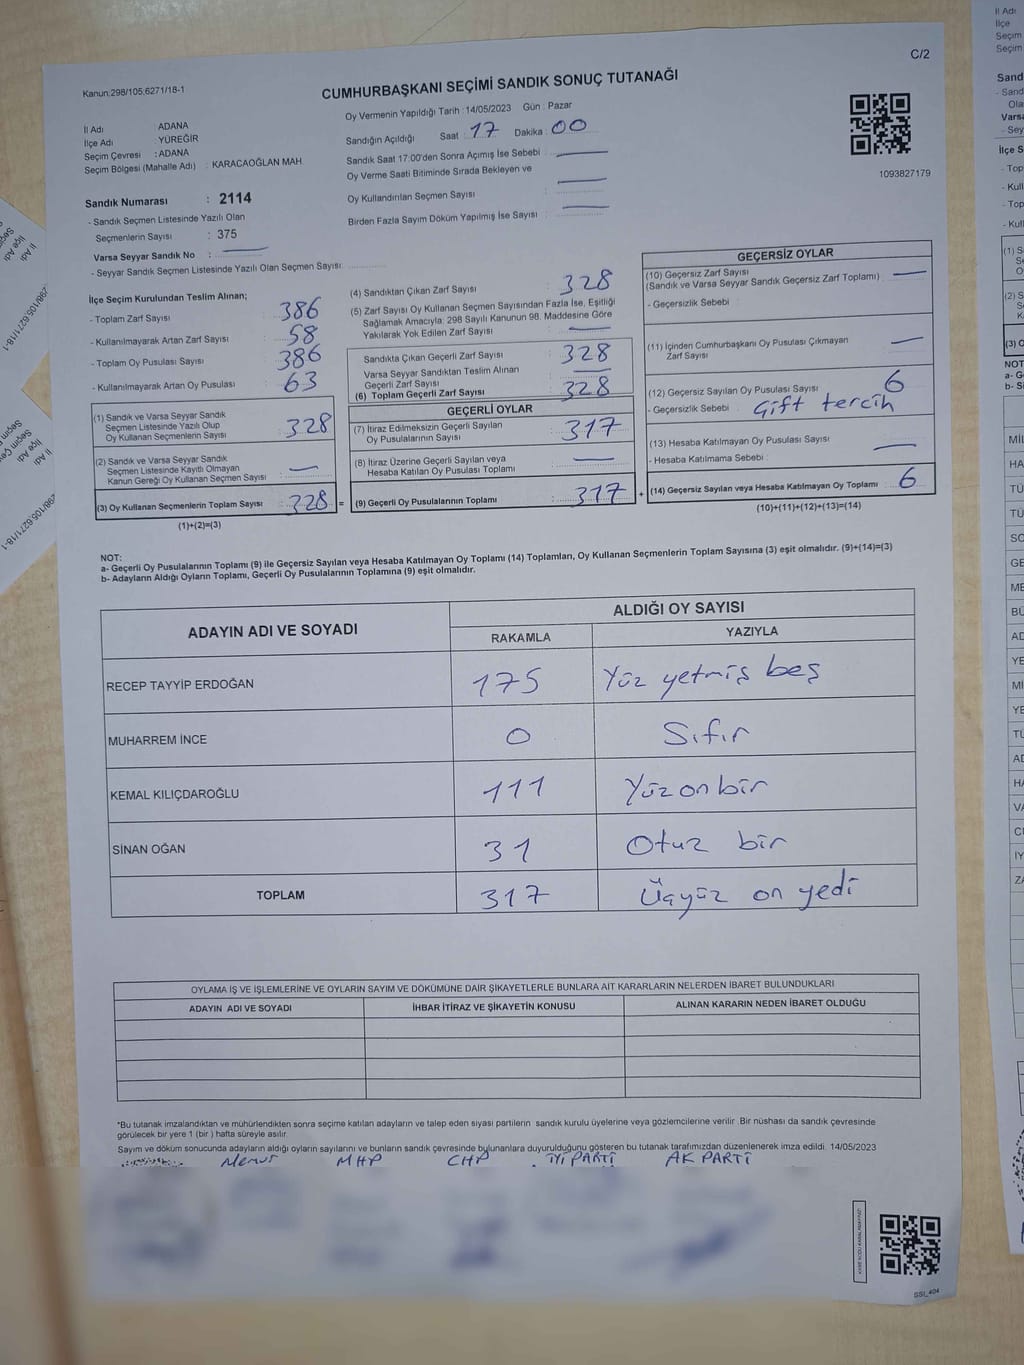 C/2
Kanun:298/105,6271/18-1
CUMHURBAŞKANI SEÇİMİ SANDIK SONUÇ TUTANAĞI
İl Adı : ADANA
İlçe Adı : YÜREĞİR
Seçim Çevresi : ADANA
Seçim Bölgesi (Mahalle Adı) : KARACAOĞLAN MAH.
Sandık Numarası : 2114
- Sandık Seçmen Listesinde Yazılı Olan
Seçmenlerin Sayısı : 375
Varsa Seyyar Sandık No :
- Seyyar Sandık Seçmen Listesinde Yazılı Olan Seçmen Sayısı:
Oy Vermenin Yapıldığı Tarih : 14/05/2023 Gün : Pazar
Sandığın Açıldığı Saat : 17 Dakika : 00
Sandık Saat 17:00'den Sonra Açımış İse Sebebi :
Oy Verme Saati Bitiminde Sırada Bekleyen ve
Oy Kullandırılan Seçmen Sayısı :
Birden Fazla Sayım Döküm Yapılmış İse Sayısı :
1093827179
İlçe Seçim Kurulundan Teslim Alınan;
- Toplam Zarf Sayısı : 386
- Kullanılmayarak Artan Zarf Sayısı : 58
- Toplam Oy Pusulası Sayısı : 386
- Kullanılmayarak Artan Oy Pusulası : 63
(1) Sandık ve Varsa Seyyar Sandık
Seçmen Listesinde Yazılı Olup
Oy Kullanan Seçmenlerin Sayısı : 328
(2) Sandık ve Varsa Seyyar Sandık
Seçmen Listesinde Kayıtlı Olmayan
Kanun Gereği Oy Kullanan Seçmen Sayısı : —
(3) Oy Kullanan Seçmenlerin Toplam Sayısı : 328 =
(1)+(2)=(3)
(4) Sandıktan Çıkan Zarf Sayısı : 328
(5) Zarf Sayısı Oy Kullanan Seçmen Sayısından Fazla İse, Eşitliği
Sağlamak Amacıyla: 298 Sayılı Kanunun 98. Maddesine Göre
Yakılarak Yok Edilen Zarf Sayısı : —
Sandıkta Çıkan Geçerli Zarf Sayısı : 328
Varsa Seyyar Sandıktan Teslim Alınan
Geçerli Zarf Sayısı : —
(6) Toplam Geçerli Zarf Sayısı : 328
GEÇERLİ OYLAR
(7) İtiraz Edilmeksizin Geçerli Sayılan
Oy Pusulalarının Sayısı : 317
(8) İtiraz Üzerine Geçerli Sayılan veya
Hesaba Katılan Oy Pusulası Toplamı : —
(9) Geçerli Oy Pusulalarının Toplamı : 317 +
GEÇERSİZ OYLAR
(10) Geçersiz Zarf Sayısı
(Sandık ve Varsa Seyyar Sandık Geçersiz Zarf Toplamı) : —
- Geçersizlik Sebebi :
(11) İçinden Cumhurbaşkanı Oy Pusulası Çıkmayan
Zarf Sayısı : —
(12) Geçersiz Sayılan Oy Pusulası Sayısı : 6
- Geçersizlik Sebebi : Çift tercih
(13) Hesaba Katılmayan Oy Pusulası Sayısı : —
- Hesaba Katılmama Sebebi :
(14) Geçersiz Sayılan veya Hesaba Katılmayan Oy Toplamı : 6
(10)+(11)+(12)+(13)=(14)
NOT:
a- Geçerli Oy Pusulalarının Toplamı (9) ile Geçersiz Sayılan veya Hesaba Katılmayan Oy Toplamı (14) Toplamları, Oy Kullanan Seçmenlerin Toplam Sayısına (3) eşit olmalıdır. (9)+(14)=(3)
b- Adayların Aldığı Oyların Toplamı, Geçerli Oy Pusulalarının Toplamına (9) eşit olmalıdır.
ADAYIN ADI VE SOYADI ALDIĞI OY SAYISI
RAKAMLA YAZIYLA
RECEP TAYYİP ERDOĞAN 175 Yüz yetmiş beş
MUHARREM İNCE 0 Sıfır
KEMAL KILIÇDAROĞLU 111 Yüz on bir
SİNAN OĞAN 31 Otuz bir
TOPLAM 317 Üçyüz on yedi
OYLAMA İŞ VE İŞLEMLERİNE VE OYLARIN SAYIM VE DÖKÜMÜNE DAİR ŞİKAYETLERLE BUNLARA AİT KARARLARIN NELERDEN İBARET BULUNDUKLARI
ADAYIN ADI VE SOYADI İHBAR İTİRAZ VE ŞİKAYETİN KONUSU ALINAN KARARIN NEDEN İBARET OLDUĞU
*Bu tutanak imzalandıktan ve mühürlendikten sonra seçime katılan adayların ve talep eden siyasi partilerin sandık kurulu üyelerine veya gözlemcilerine verilir. Bir nüshası da sandık çevresinde
görülecek bir yere 1 (bir) hafta süreyle asılır.
Sayım ve döküm sonucunda adayların aldığı oyların sayılarını ve bunların sandık çevresinde bulunanlara duyurulduğunu gösteren bu tutanak tarafımızdan düzenlenerek imza edildi. 14/05/2023
Memur MHP CHP İYİ PARTİ AK PARTİ
SSİ_404